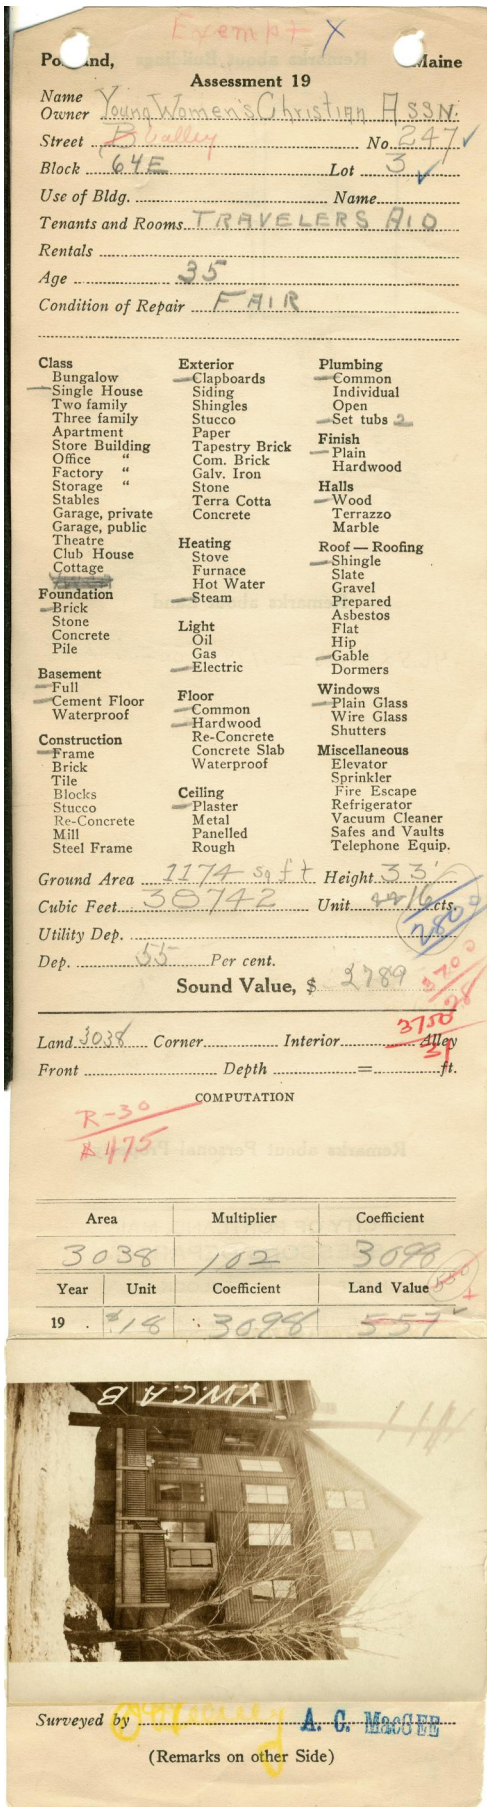 Exempt X
Portland, Maine
Assessment 19
Name
Owner Young Women's Christian ASSN.
Street B Valley No. 247 ✓
Block 64E Lot 3 ✓
Use of Bldg. Name
Tenants and Rooms TRAVELERS AID
Rentals
Age 35
Condition of Repair FAIR
Class
Bungalow
Single House
Two family
Three family
Apartment
Store Building
Office "
Factory "
Storage "
Stables
Garage, private
Garage, public
Theatre
Club House
Cottage
Foundation
Brick
Stone
Concrete
Pile
Basement
Full
Cement Floor
Waterproof
Construction
Frame
Brick
Tile
Blocks
Stucco
Re-Concrete
Mill
Steel Frame
Exterior
Clapboards
Siding
Shingles
Stucco
Paper
Tapestry Brick
Com. Brick
Galv. Iron
Stone
Terra Cotta
Concrete
Heating
Stove
Furnace
Hot Water
Steam
Light
Oil
Gas
Electric
Floor
Common
Hardwood
Re-Concrete
Concrete Slab
Waterproof
Ceiling
Plaster
Metal
Panelled
Rough
Plumbing
Common
Individual
Open
Set tubs 2
Finish
Plain
Hardwood
Halls
Wood
Terrazzo
Marble
Roof — Roofing
Shingle
Slate
Gravel
Prepared
Asbestos
Flat
Hip
Gable
Dormers
Windows
Plain Glass
Wire Glass
Shutters
Miscellaneous
Elevator
Sprinkler
Fire Escape
Refrigerator
Vacuum Cleaner
Safes and Vaults
Telephone Equip.
Ground Area 1174 sq ft Height 33'
Cubic Feet 38742 Unit 16 cts.
2800
Utility Dep.
Dep. 55 Per cent.
Sound Value, $ 2789
3750
31
Land 3038 Corner Interior Alley
Front Depth = ft.
COMPUTATION
R-30
$1175
Area Multiplier Coefficient
3038 102 3098
Year Unit Coefficient Land Value
19 . $18 3098 557
Y.W.C.A B
Surveyed by A. C. MacGEE
(Remarks on other Side)